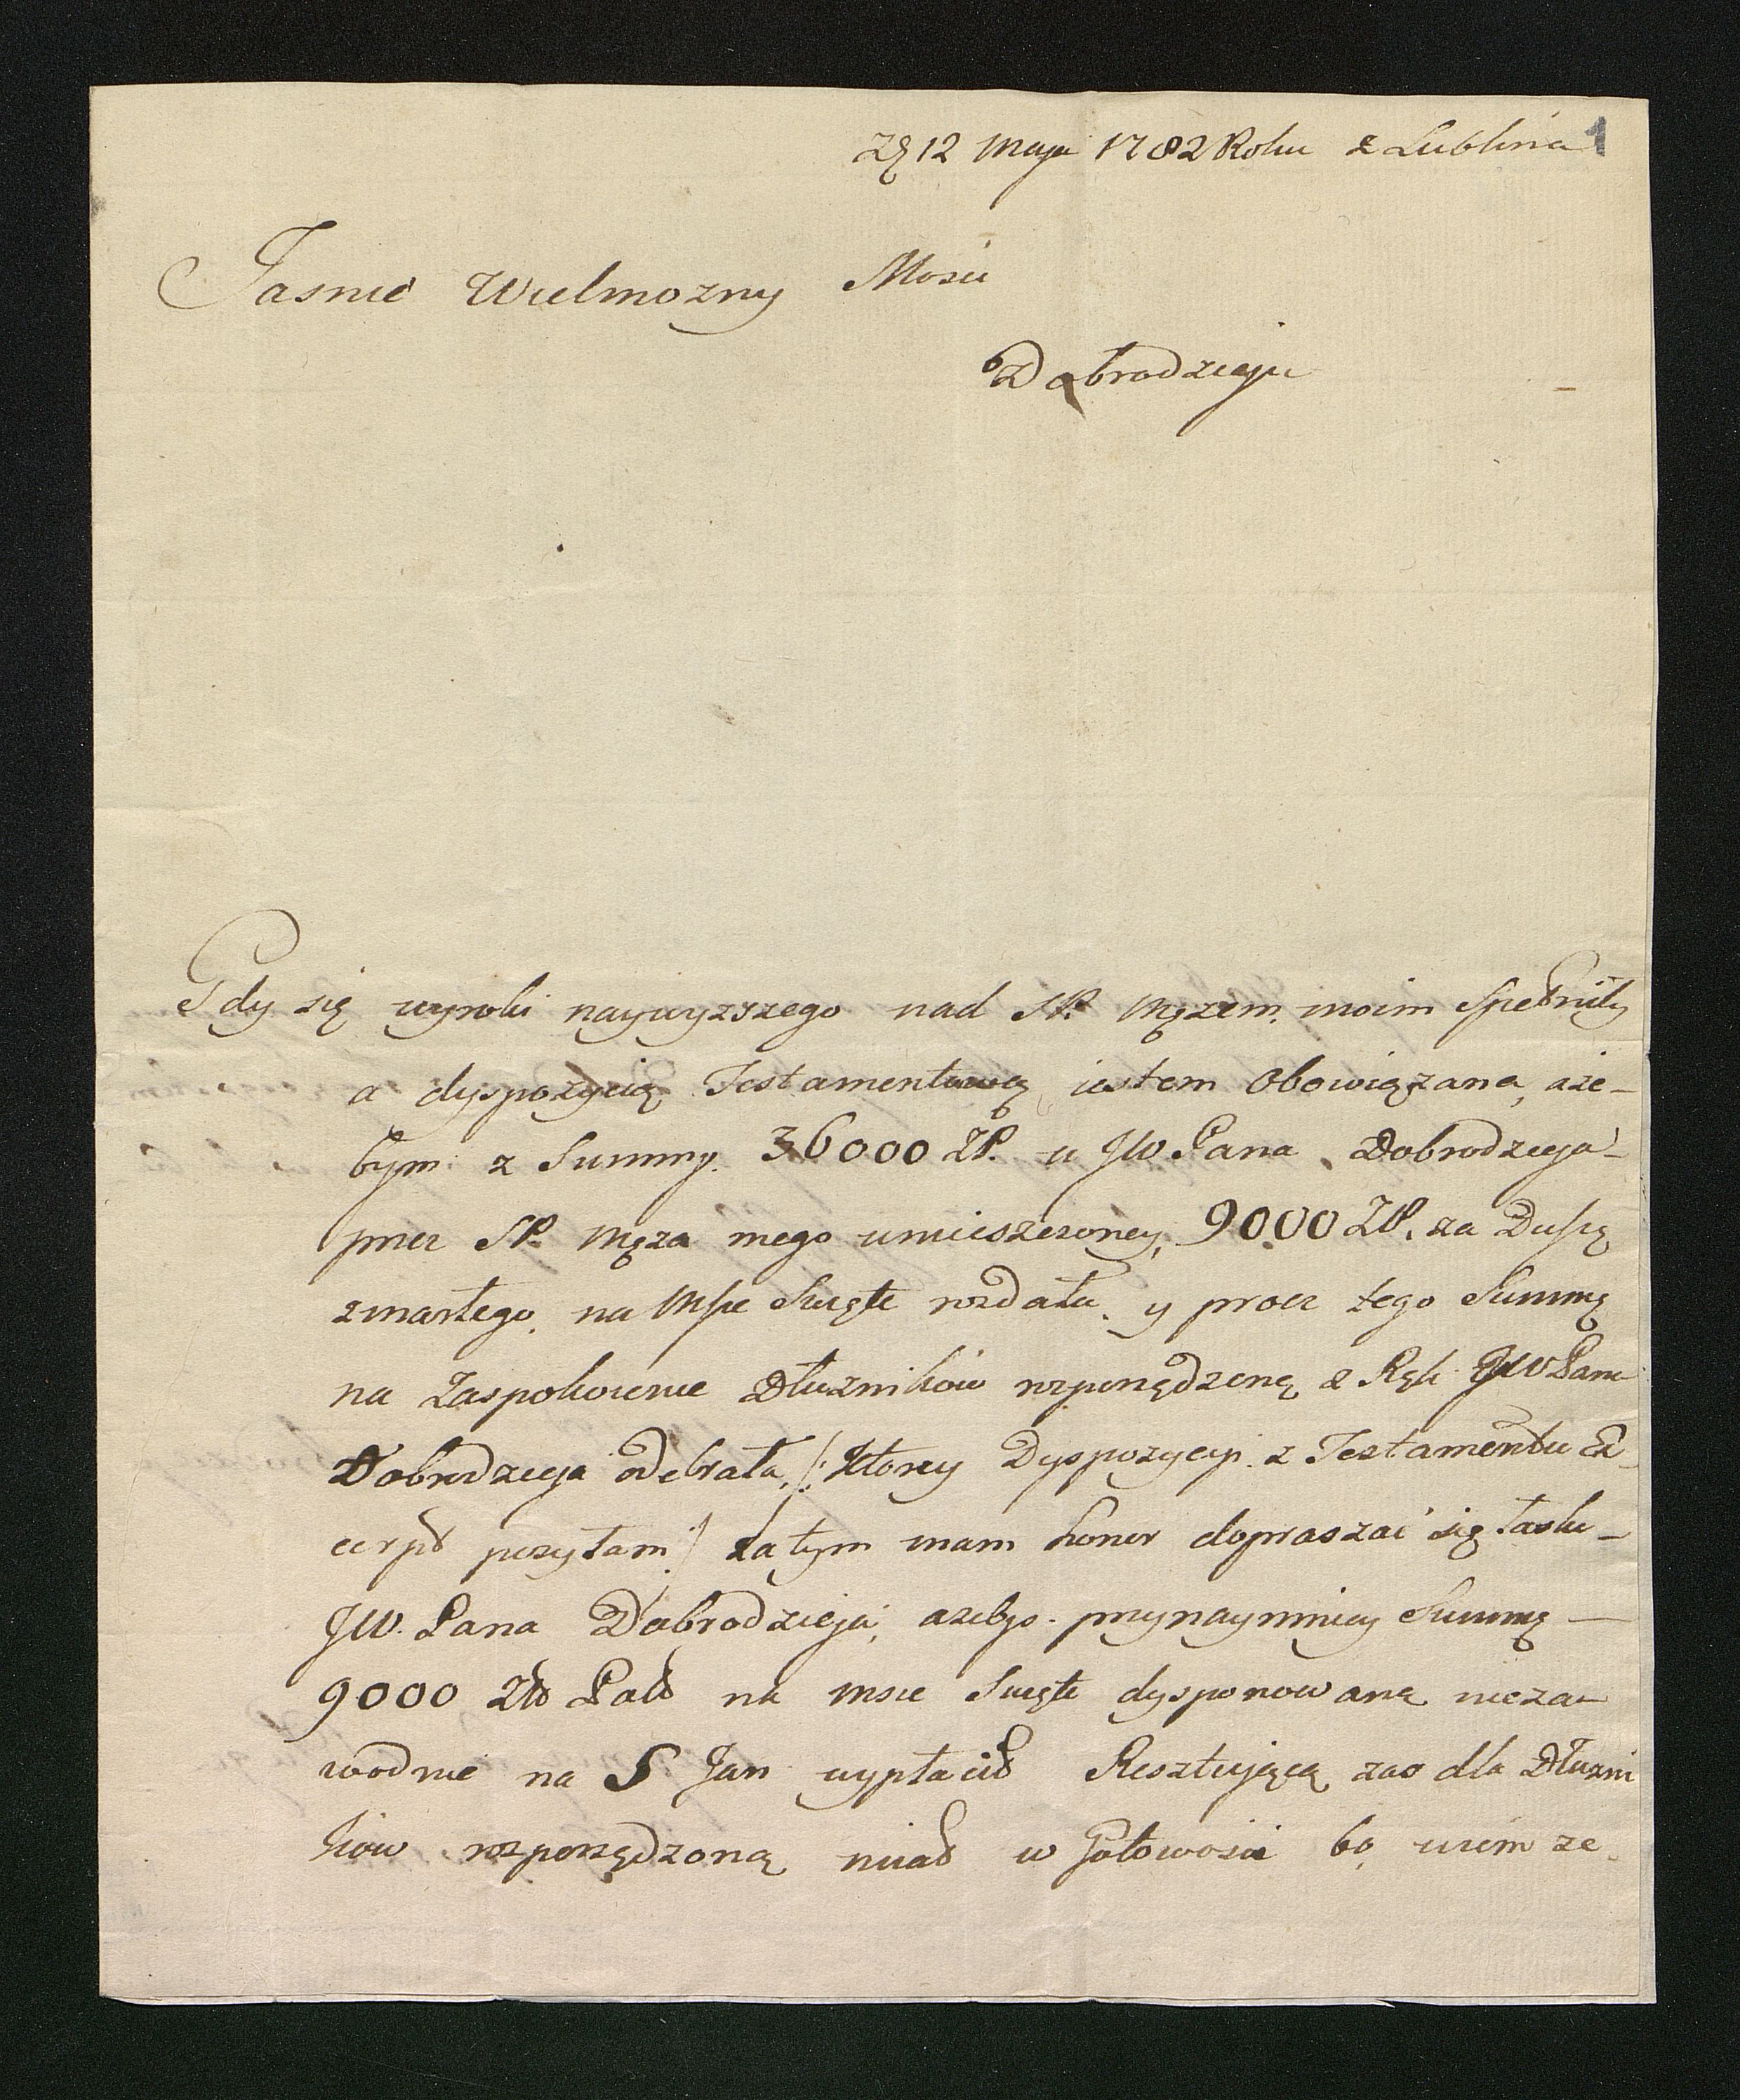 12 Maja 1782 Roku z Lublina 1
Jasnie Wielmozny Mosci
Dobrodzieju
Gdy się wyroki naywyzszego nad SP. Męzem moim Spełniły
a dyspozycią Testamentową iestem Obowiązana, aże-
bym z Summy 36000 ZP. u JW Pana Dobrodzieja
przez SP. Męza mego umieszczoney, 9000 ZP. za Duszę
zmarłego na Msze Swięte rozdała, y procz tego Summę
na Zaspokoienie Dłuznikow rozporządzoną z Rąk JW Pana
Dobrodzieja odebrała, /: Ktorey Dyspozycyi z Testamentu Ex-
cerpt posyłam :/ zatym mam honor dopraszać się łaski
JW. Pana Dobrodzieja, azebys przynaymniey Summę
9000 Zło Pols na msze Swięte dysponowaną nieza-
wodnie na S Jan wypłacić Resztującą zas dla Dłuzni
kow rozporządzoną miał w Gotowosci bo wiem ze